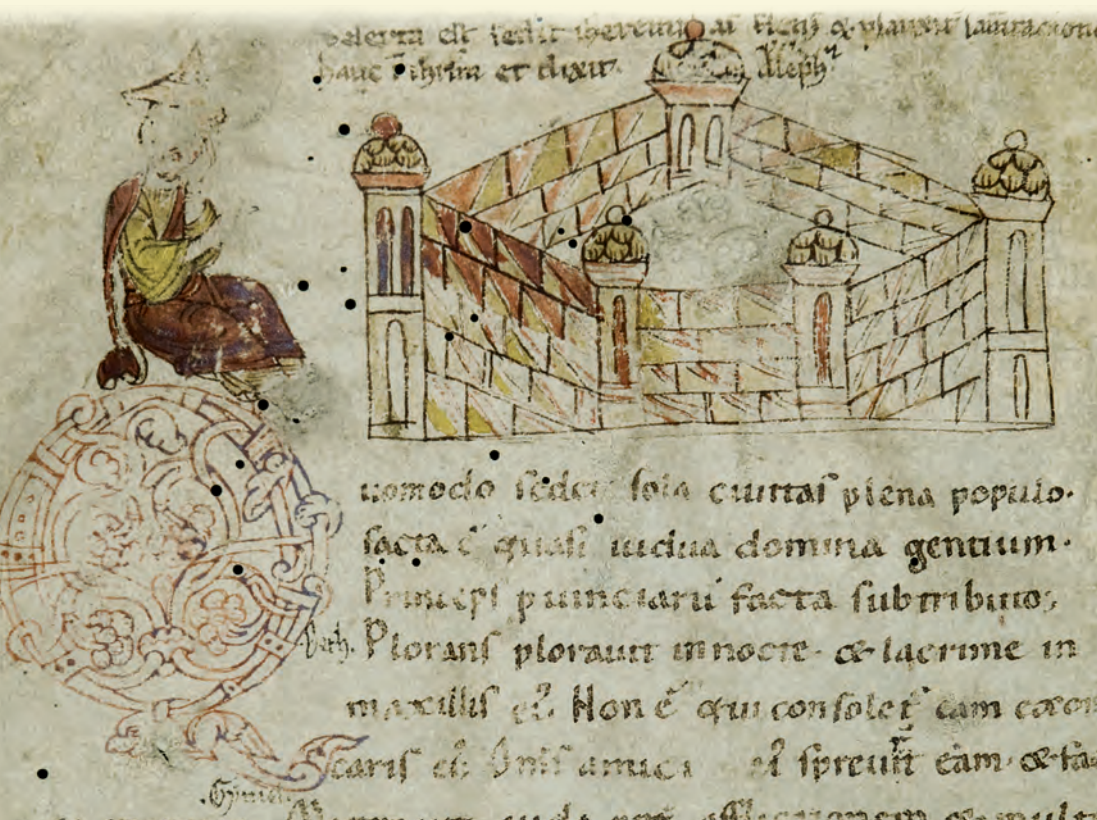 deserta est sedit iheremias & planxit lamtatione
hanc et dixit. Aleph
uomodo sedet sola ciuitas plena populo.
facta ē quasi uidua domina gentium.
Princeps puinciarū facta subtributo;
Beth. Plorans plorauit innocte. & lacrime in
maxillis ei. Non ē qui consolet eam
caris ei. Omīs amici spreuer̄t eam. &
.Gymel.